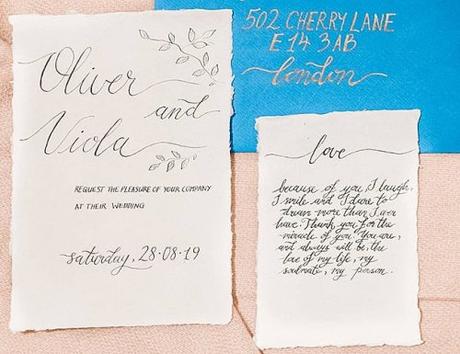 Oliver
and
Viola
REQUEST THE PLEASURE OF YOUR COMPANY
AT THEIR WEDDING
saturday, 28·08·19
502 CHERRY LANE
E14 3AB
london
love
because of you, I laugh,
I smile and I dare to
dream more than I ever
have. Thank you for the
miracle of you. You are,
and always will be, the
love of my life, my
soulmate, my person.